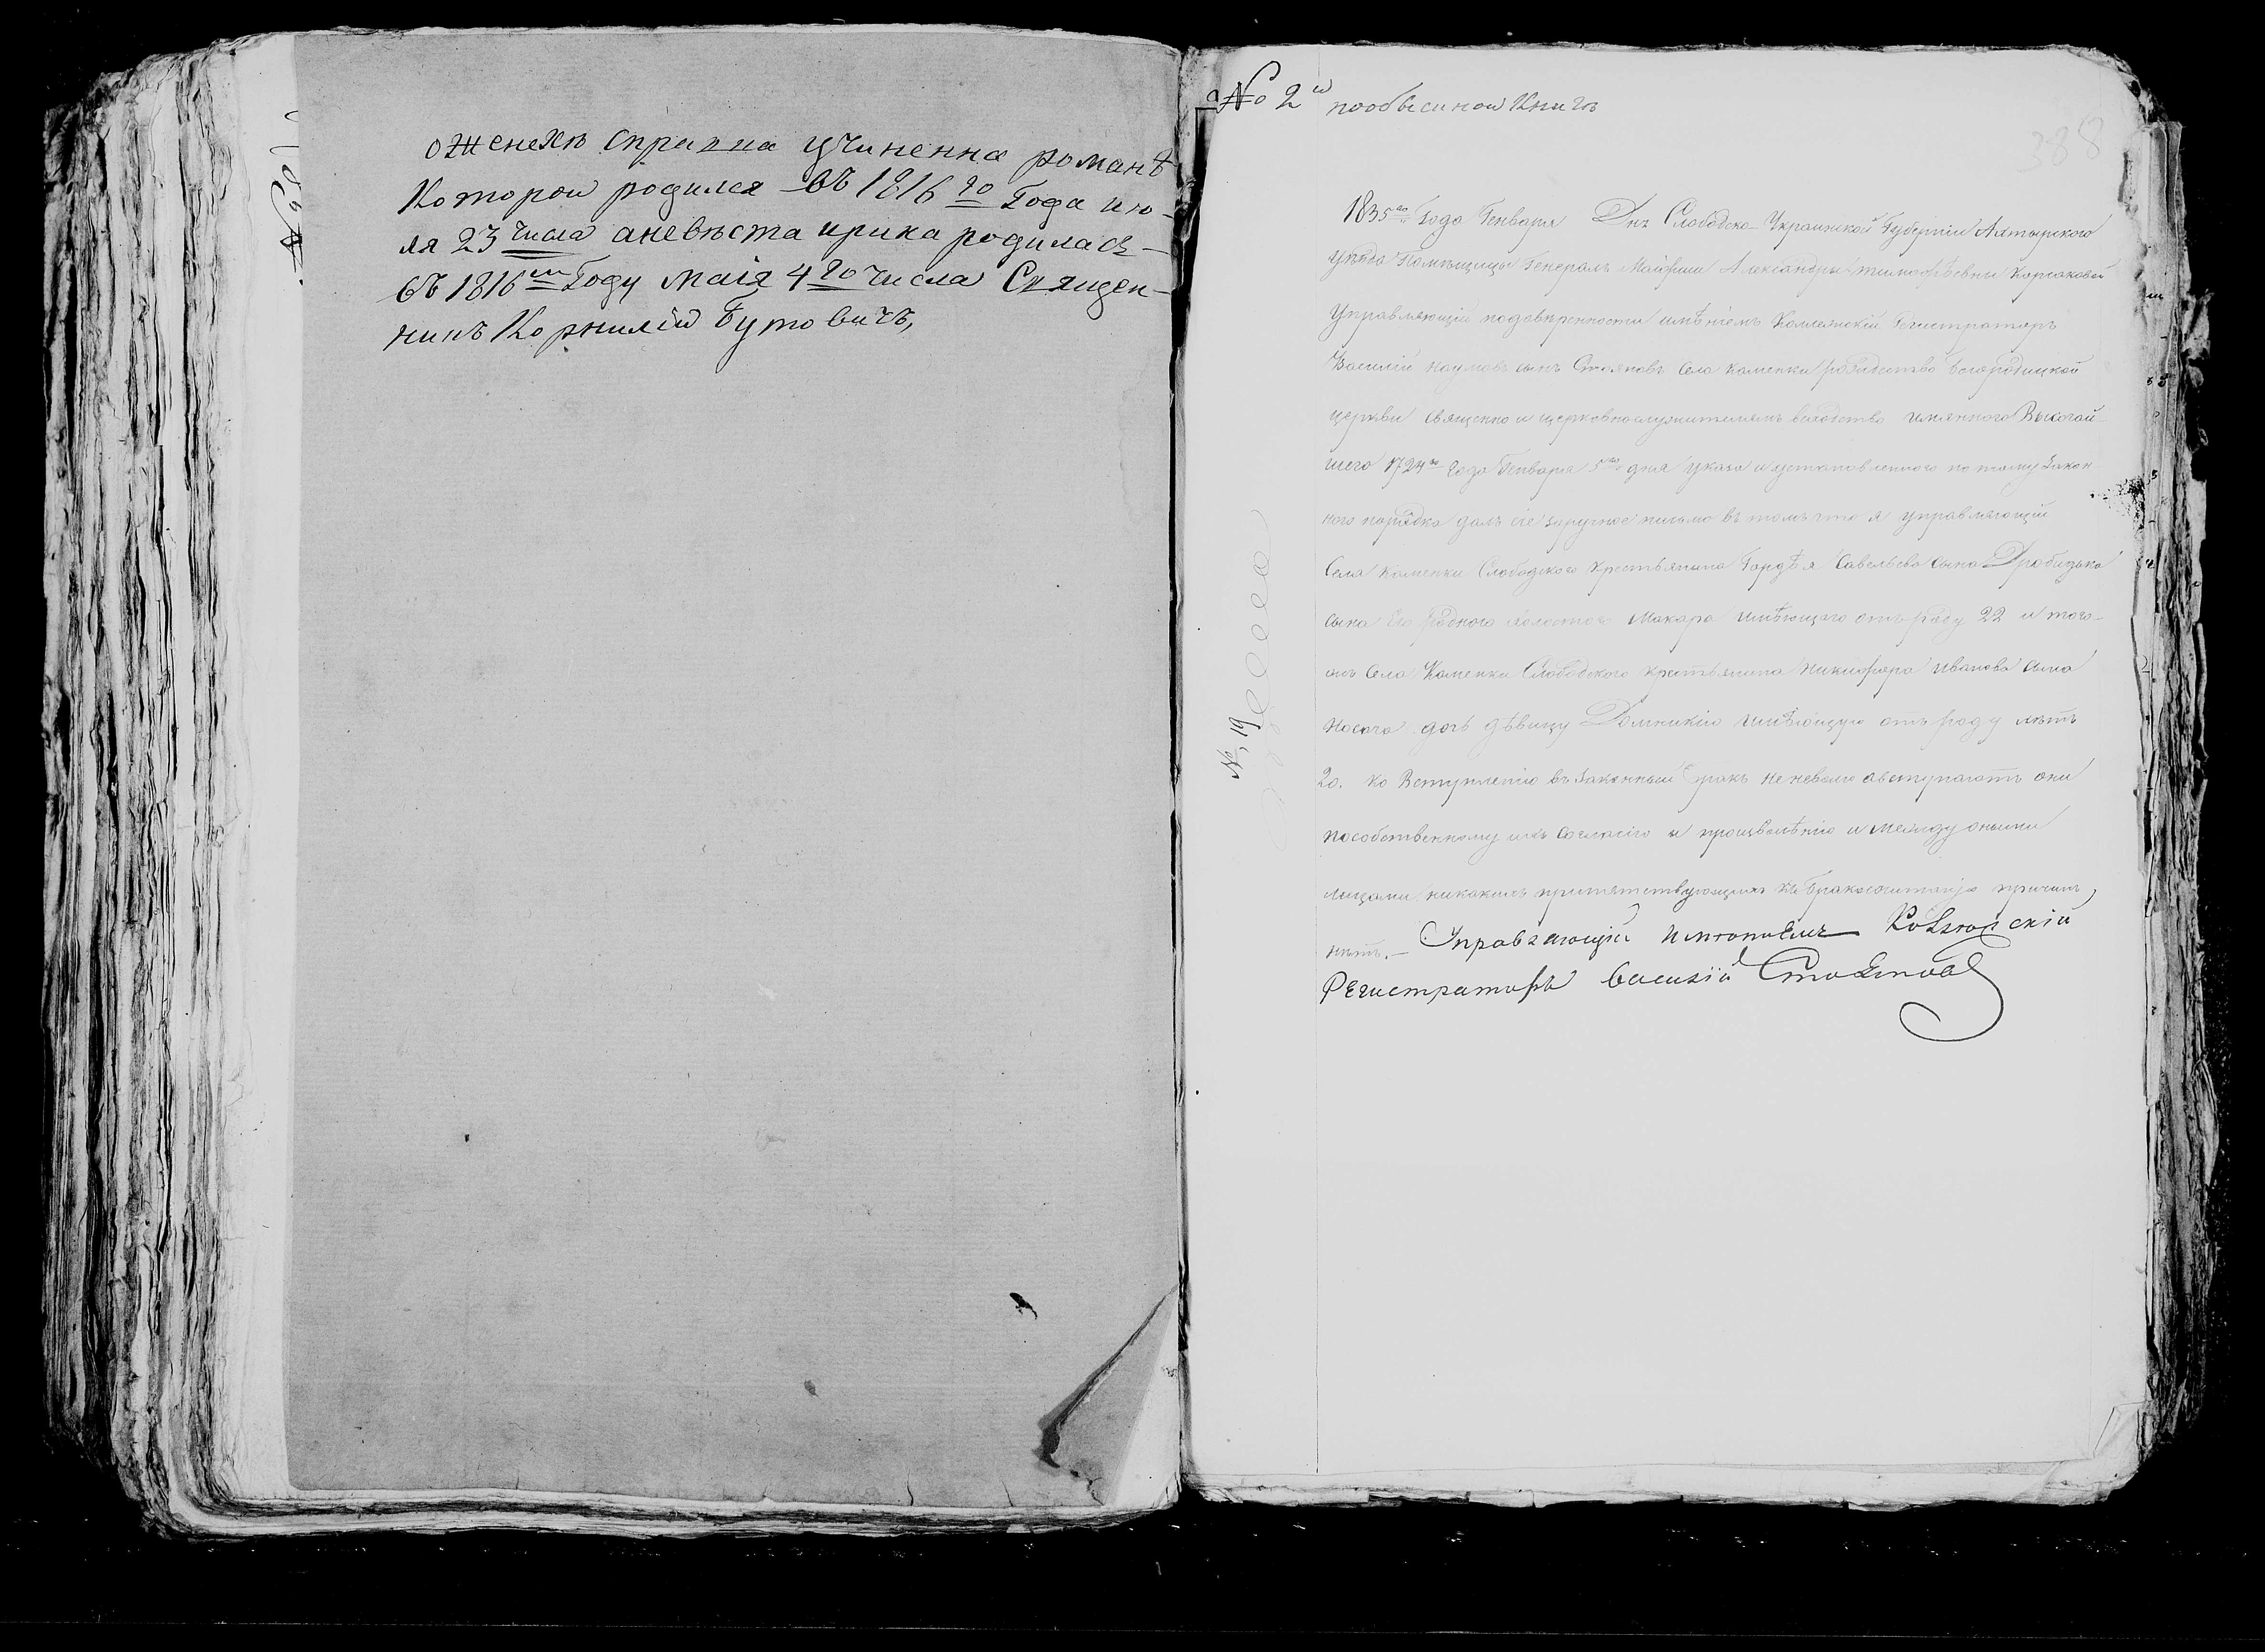 оженехѣ справка учиненна романъ
Которои родился въ 1816го Года ию-
ля 23 числа аневѣста ирина родилась
въ 1816м Году маія 4го числа Священ-
никъ Корнилій Бутовичъ,
№ 2й пообысиной Книгѣ
388
1835го Года Генваря Днъ Слободско-Украинской Губерніи Ахтырского
уѣзда Помѣщицы Генералъ Маіорши Александры тимофѣевны Корсаковой
Управляющій подовѣренности имѣніемъ Коллежскій Регистраторъ
Василій наумовъ сынъ Стояновъ села каменки рождество богородицкой
церкви священно и церковнослужителямъ вслѣдство имяннаго Высочай-
шего 1724го Года Генваря 5го дня указа и установленного по тому закон
ного порядка далъ сіе заручное письмо въ томъ что я управляющій
Села Каменки Слободского крестьянина Гордѣя Савельева сына Дробицька
сына его родного холостого Макара имѣющаго отъ роду 22 и того-
жъ Села Каменки Слободского крестьянина Никифора Иванова сына
Носача дочь дѣвицу Домникію имѣющую отъ роду лѣтъ
20. ко Вступленію въ законный бракъ неневолю авступаютъ они
пособственному ихъ согласію и произволѣнію и между оными
лицами никакихъ припятствующихъ къ бракосочитанію причинъ
нѣтъ.— Управляющій Имѣніемъ Коллежскій
Регистраторъ Василій Стояновъ
№ 19